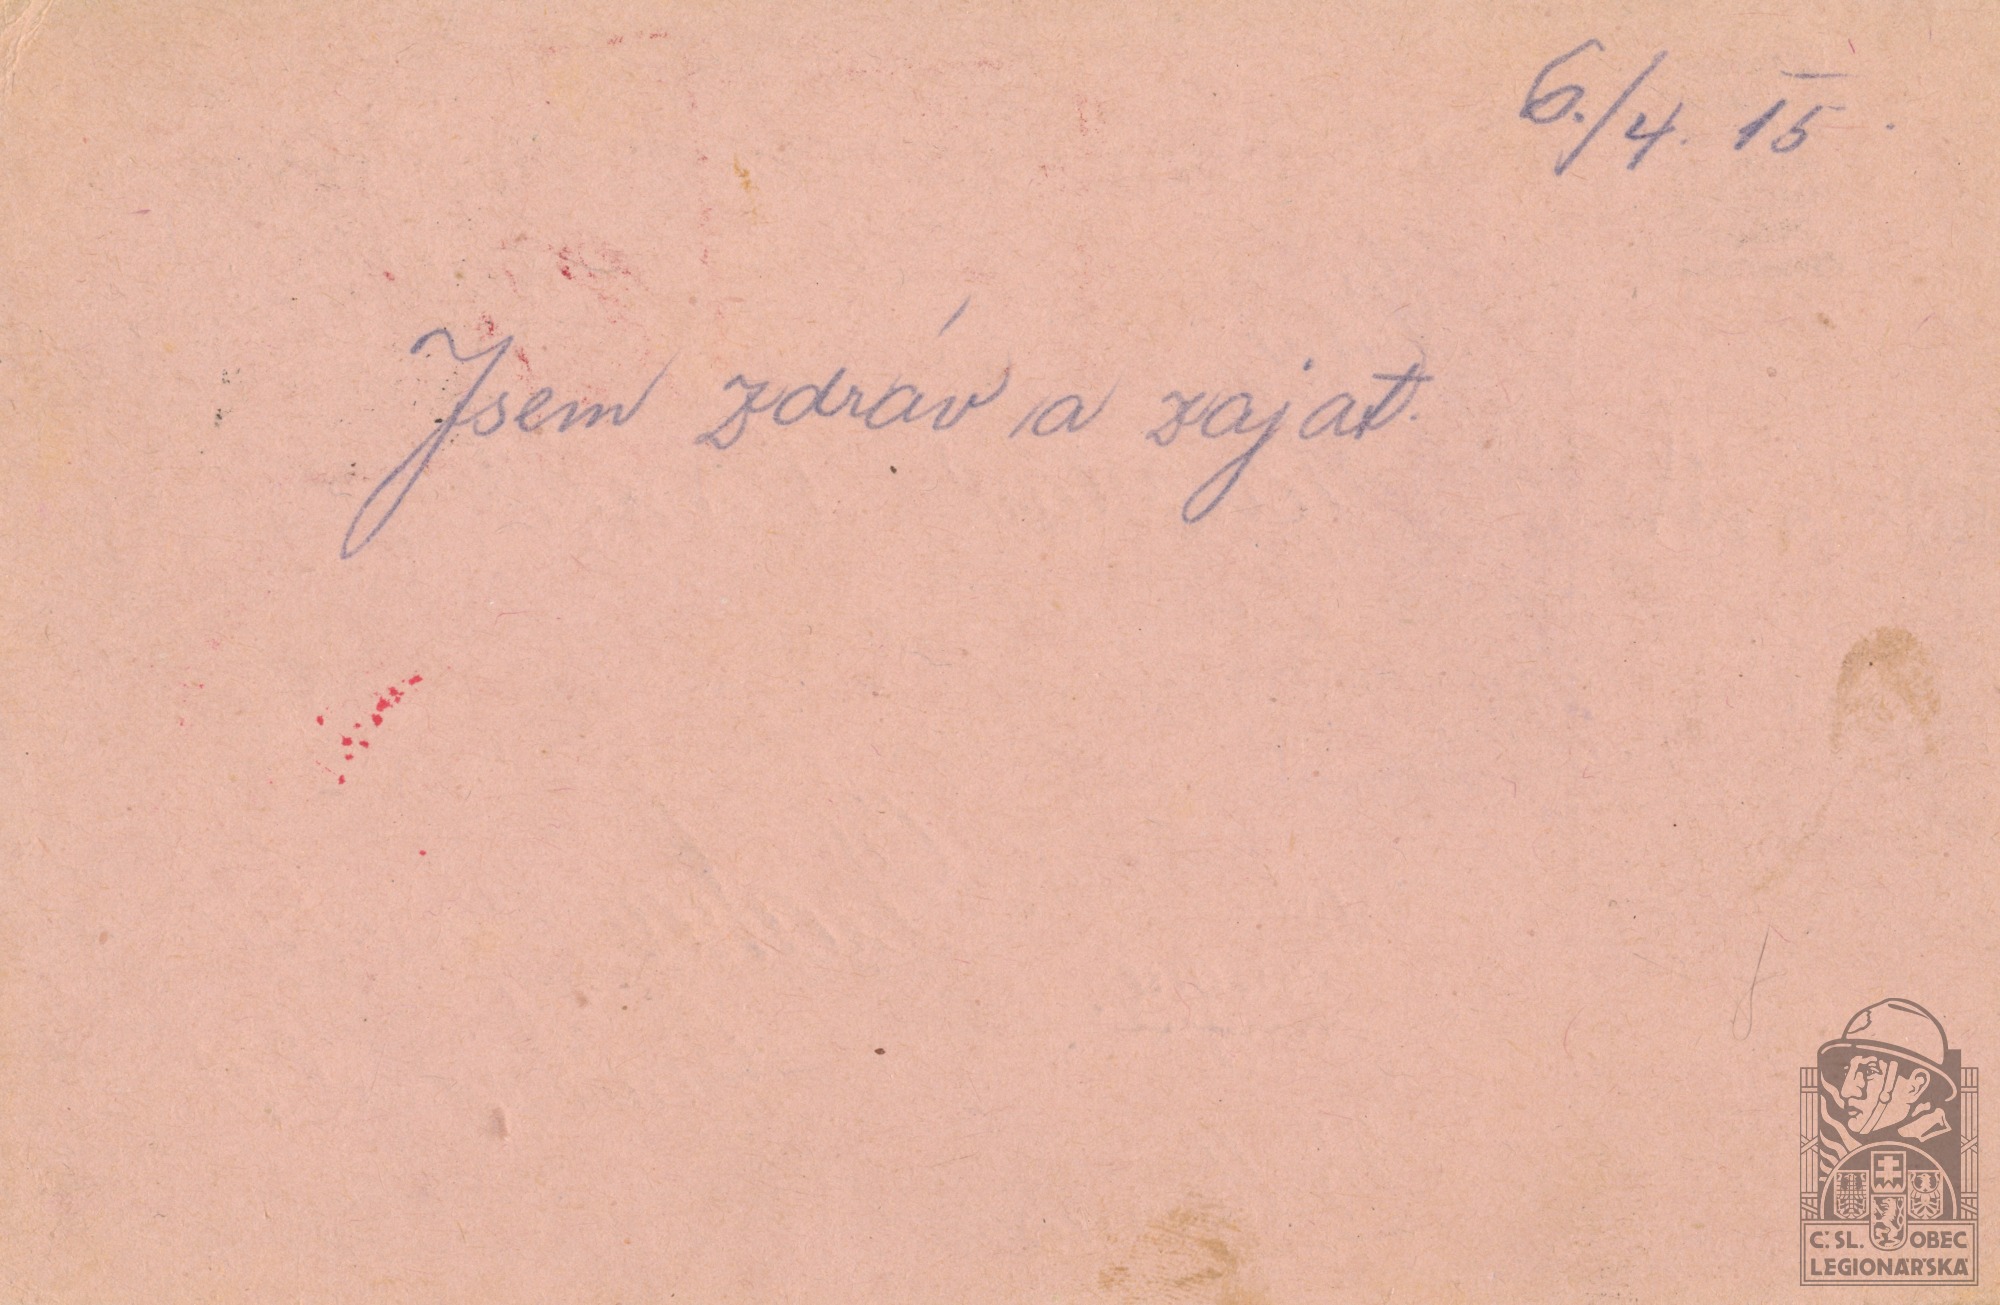 6./4. 15.
Jsem zdráv a zajat.
Č. SL. OBEC
LEGIONÁŘSKÁ